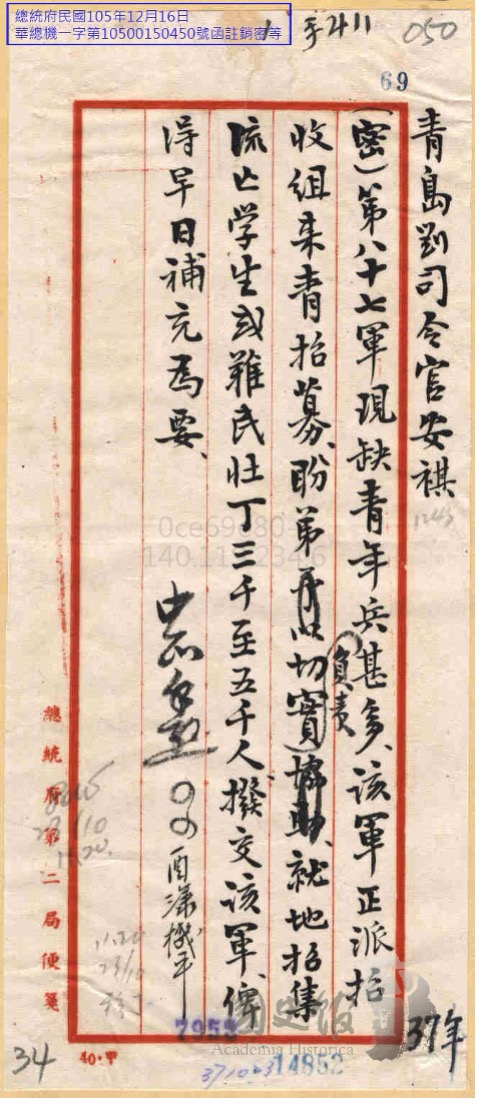 總統府民國105年12月16日
華總機一字第10500150450號函註銷密等
手411
050
69
青島劉司令官安祺
1245
(密)第八十七軍現缺青年兵甚多、該軍正派招
收組來青招募、盼弟予以切實協助、就地招集
負責
流亡学生或難民壯丁三千至五千人撥交該軍、俾
得早日補充為要、
中正手啟
酉漾機平
總統府第二局便箋
11.20
23/10
7953
37年
34
40·甲
14852
371023
Academia Historica